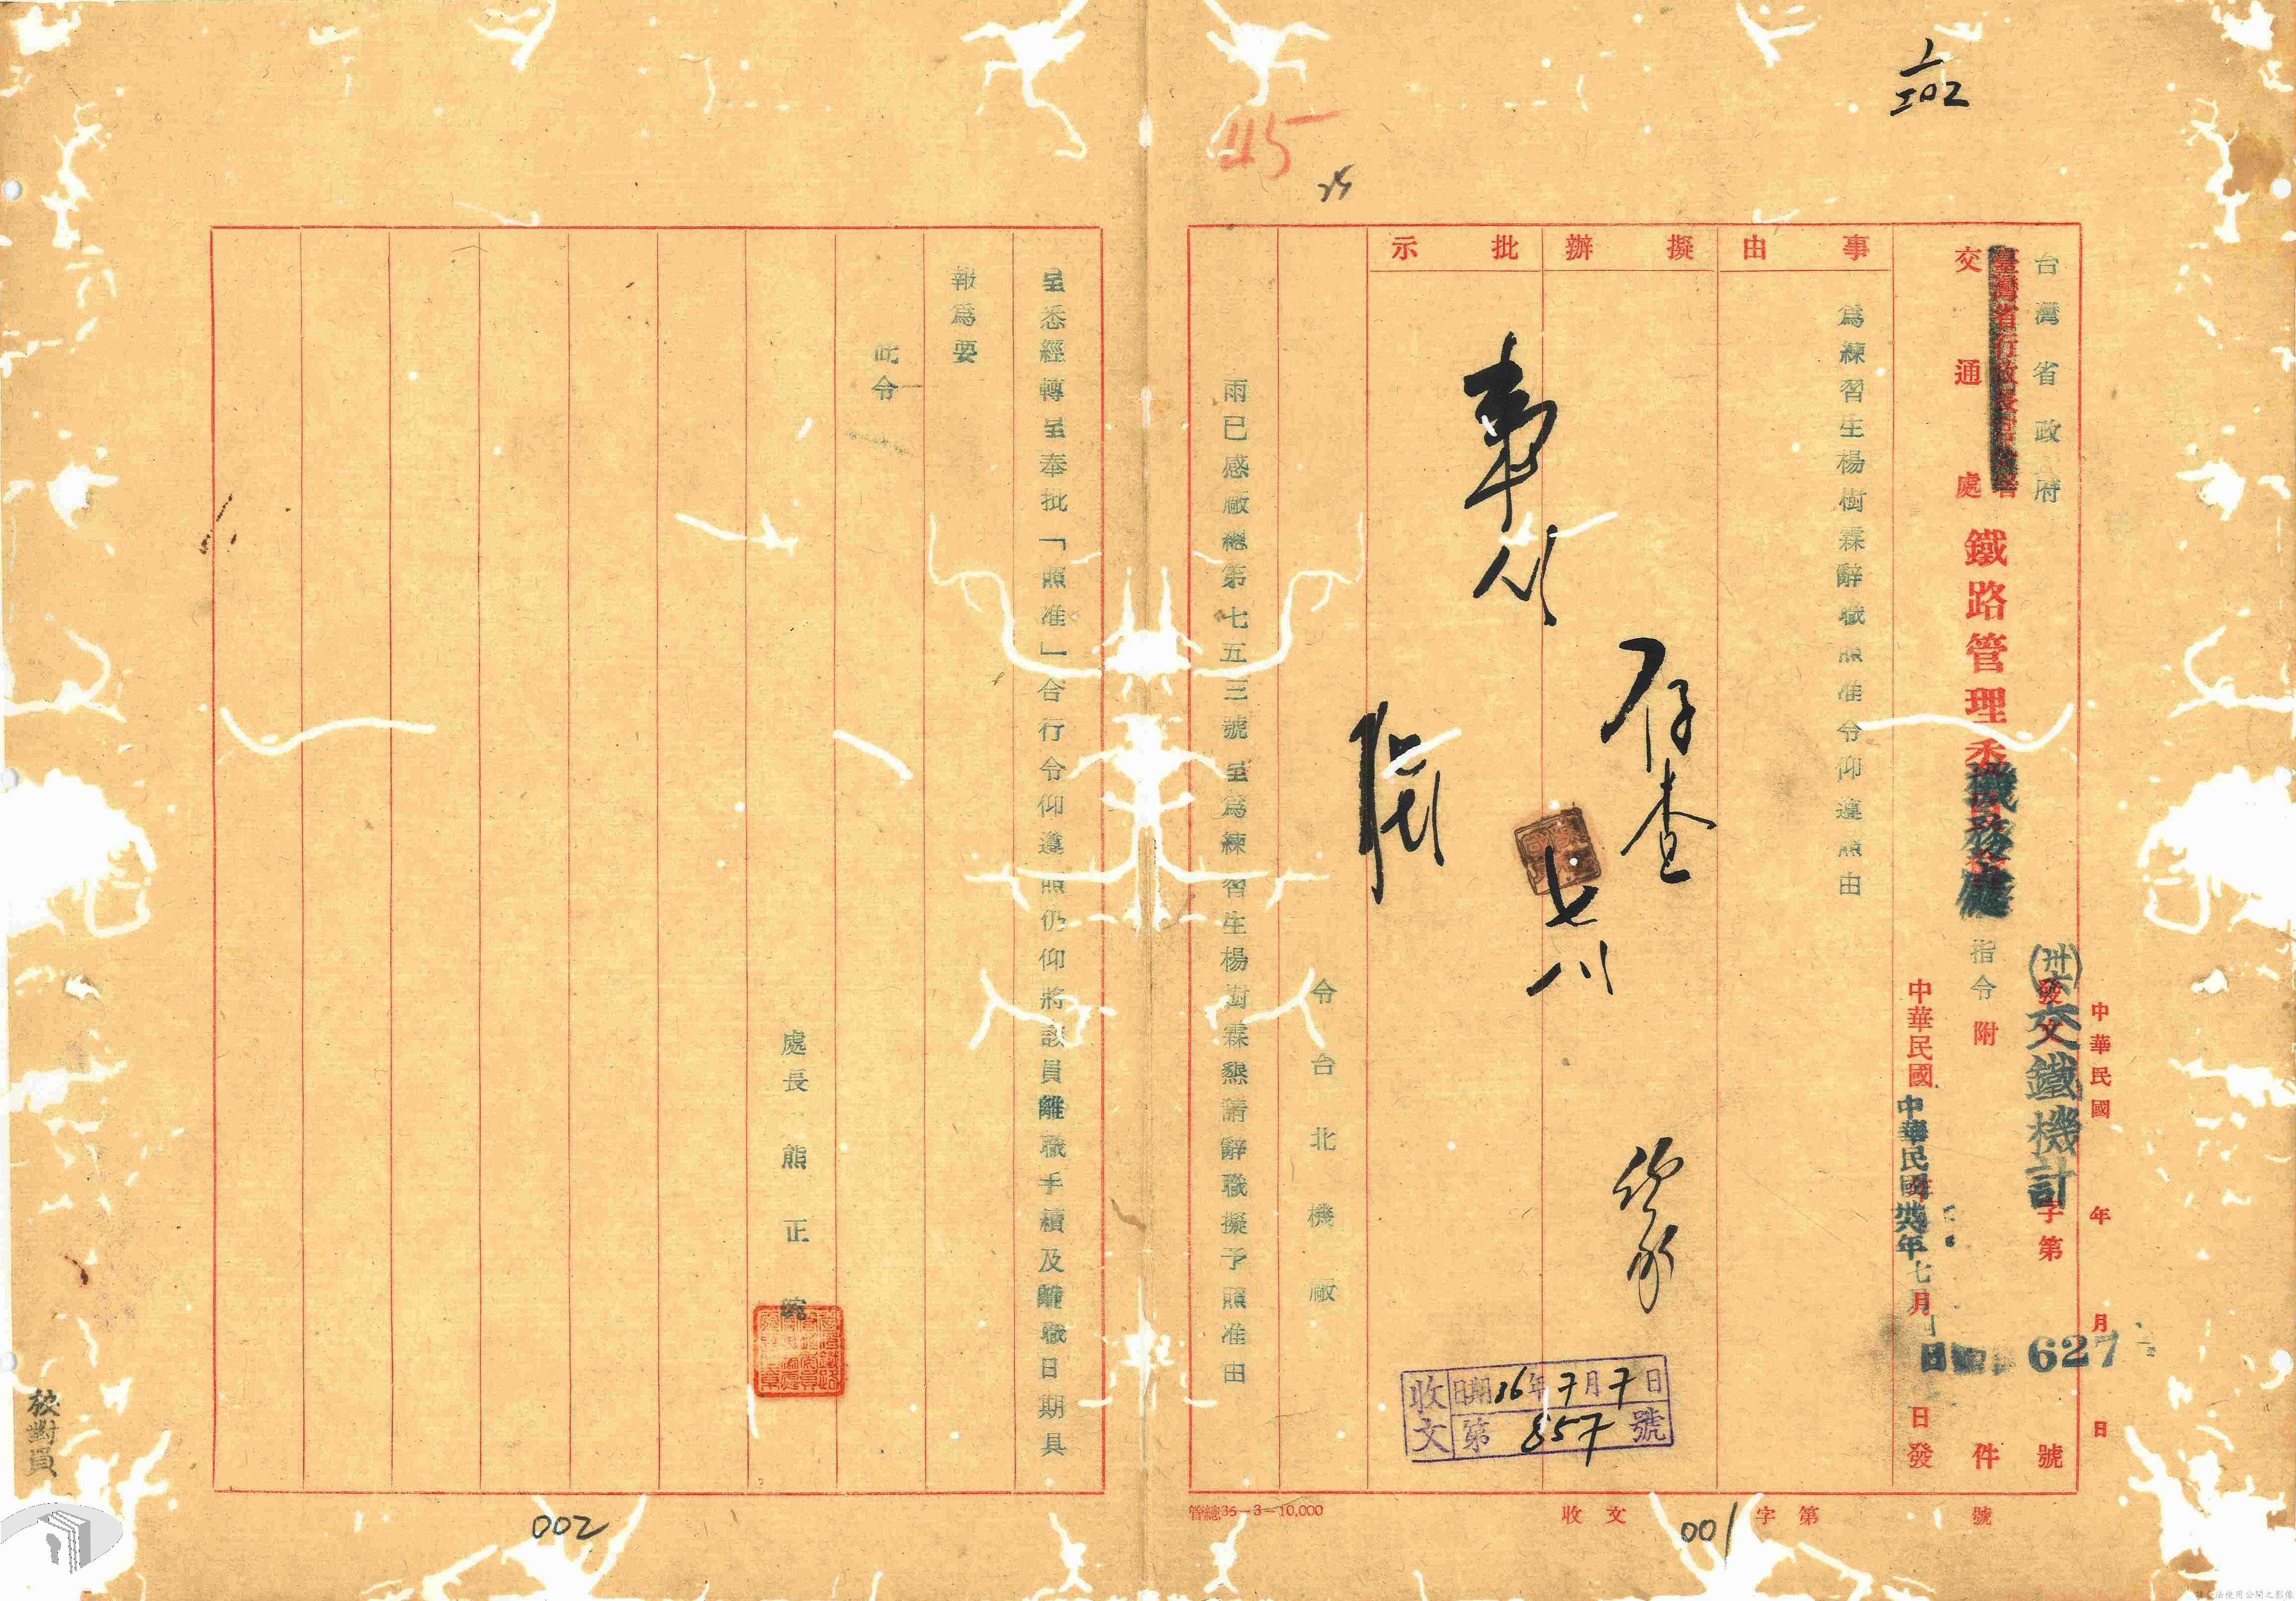 202
45
台灣省政府
交通處
鐵路管理委
機務處
指令
附
件
中華民國 年 月 日
(卅六)交鐵機計
發文 字第 627 號
中華民國
中華民國卅六年七月
日
日發
事由
擬辦
批示
為練習生楊樹霖辭職照准令仰遵照由
存查
七
收文
日期36年7月7日
第 857 號
令台北機廠
兩已感廠總第七五三號呈為練習生楊樹霖懇請辭職擬予照准由
管總35-3-10,000
收文 字第 號
001
呈悉經轉呈奉批「照准」合行令仰遵照仍仰將該員離職手續及離職日期具
報為要
此令
處長 熊正
校對員
002